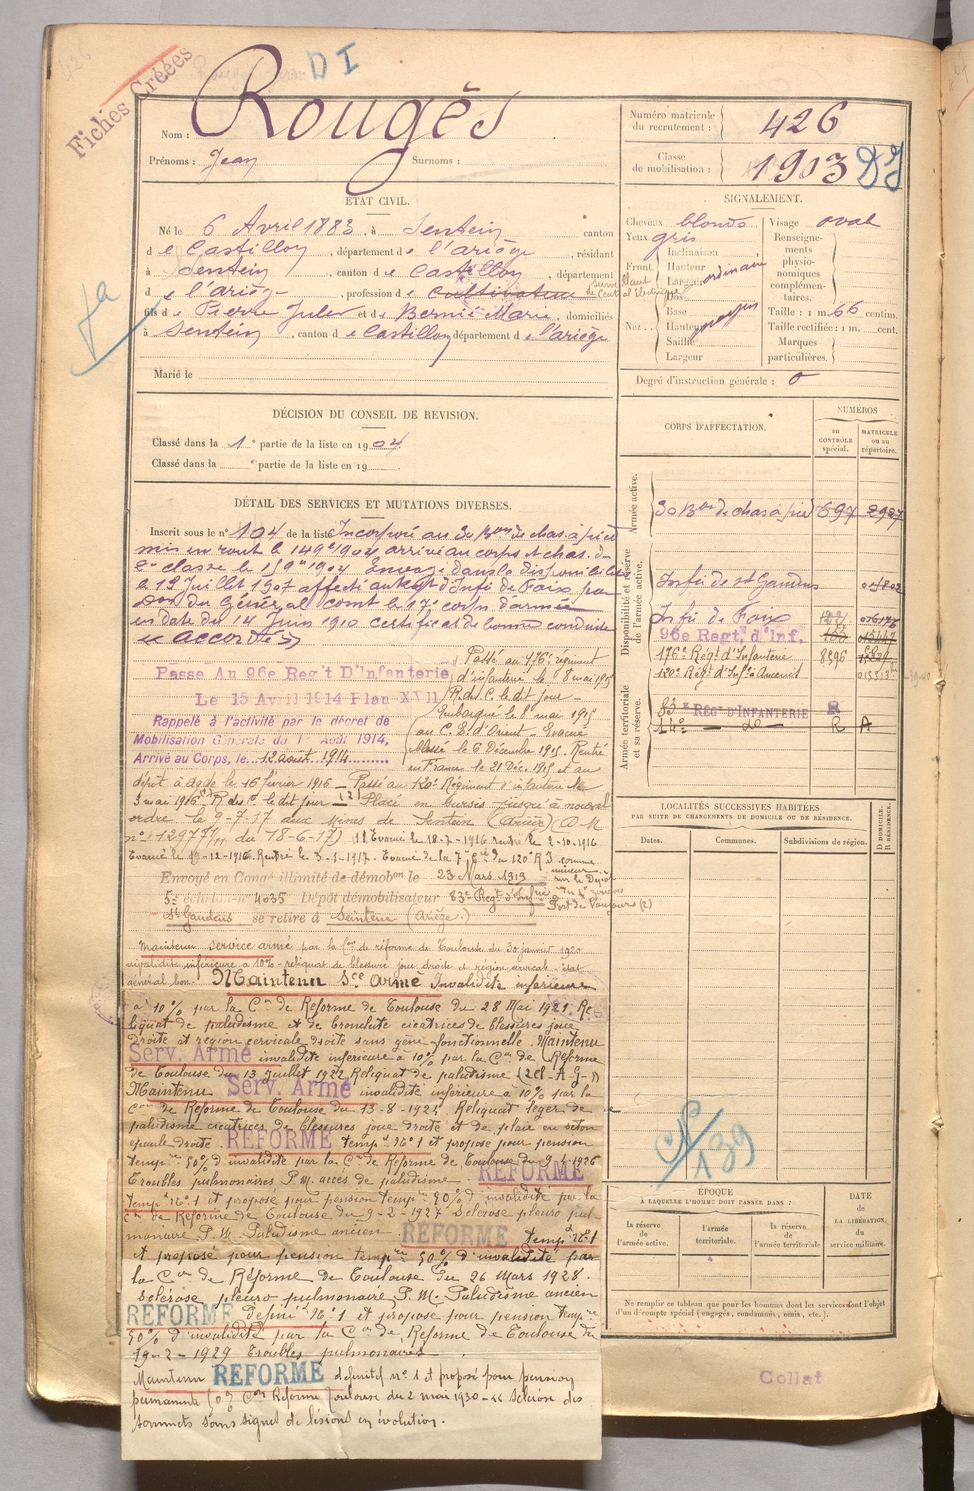 Fiches Créées
D I
Nom : Rougès
Prénoms : Jean Surnoms :
Numéro matricule du recrutement : 426
Classe de mobilisation : 1903 DI
ÉTAT CIVIL.
Né le 6 Avril 1883, à Sentein canton
d e Castillon, département d e l'ariège, résidant
à Sentein, canton d e Castillon, département
d e l'ariège, profession d e Cultivateur
fils d e Pierre Jules et d e Bernié Marie, domiciliés
à Sentein, canton d e Castillon département d e l'ariège
Marié le
SIGNALEMENT.
Cheveux blonds Visage oval
Yeux gris
Front Inclinaison
Hauteur
Largeur ordinaire
Nez Dos
Base
Hauteur
Saillie
Largeur
Renseignements physionomiques complémentaires.
Taille : 1 m. 66 centim.
Taille rectifiée : 1 m. cent.
Marques particulières.
Degré d'instruction générale : 0
DÉCISION DU CONSEIL DE REVISION.
Classé dans la 1e partie de la liste en 1904
Classé dans la e partie de la liste en 19
CORPS D'AFFECTATION.
NUMÉROS
DU CONTRÔLE spécial.
MATRICULE ou au répertoire.
Armée active.
30 Bon de chas à pied 697 2927
Disponibilité et réserve de l'armée active.
Infie de St Gaudens
Infie de Foix
96e Regt. d'Inf.
176e Régt d'Infanterie 8396
120e Régt d'Infie
Armée territoriale et sa réserve.
83e RÉGt D'INFANTERIE R
14e — do — R A
DÉTAIL DES SERVICES ET MUTATIONS DIVERSES.
Inscrit sous le n° 104 de la liste Incorporé au 30 Bon de chas. à pied
mis en route le 14 9bre 1904 arrivé au corps et chas. de
2e classe le 15 9bre 1904 Envoyé dans la disponibilité
le 12 Juillet 1907 affecté au Régt d'Infie de Foix par
Don du Général Comt le 17e corps d'armée
en date du 14 Juin 1910 certificat de bonne conduite
"accordé"
Passé Au 96e Reg't D'Infanterie
Le 15 Avril 1914 Plan XVII
Rappelé à l'activité par le décret de
Mobilisation Générale du 1er Août 1914,
Arrivé au Corps, le 12 août 1914
Passé au 176e régiment
d'infanterie le 8 mai 1915
R. des C. le dit jour –
Embarqué le 8 mai 1915
au C. E. d'Orient – Evacué
blessé le 6 Décembre 1915. Rentré
en France le 21 Déc. 1915 et au
dépôt à agde le 16 février 1916 – Passé au 120e Régiment d'infanterie le
3 mai 1916 R. des C. le dit jour – (2) Placé en sursis jusqu'à nouvel
ordre le 9-7-17 aux Mines de Sentein (Ariège) (D M
n° 12977/11 du 18-6-17) (1) Evacué le 18-7-1916 rentré le 2-10-1916
Evacué le 19-12-1916. Rentré le 5-1-1917. Evacué de la 7e Cie du 120e R.I. comme
Envoyé en Congé illimité de démobon le 23 Mars 1919
5e échelon n° 4035 Dépôt démobilisateur 83e Regt d'Infie
St Gaudens se retire à Sentein (Ariège.)
Maintenu service armé par la Con de réforme de Toulouse du 30 janvier 1920
invalidité inférieure à 10% – reliquat de blessure joue droite et région cervicale – état
général bon – Maintenu Sce Armé Invalidité inférieure
à 10% par la Con de Réforme de Toulouse du 28 Mai 1921. Re
liquat de paludisme et de bronchite cicatrices de blessures joue
droite et région cervicale droite sans gêne fonctionnelle. Maintenu
Serv. Armé invalidité inférieure à 10% par la Con de Réforme
de Toulouse du 13 Juillet 1922 Reliquat de paludisme (2cl-A-G-)
Maintenu Serv. Armé invalidité inférieure à 10% par la
Con de Réforme de Toulouse du 13-8-1923 Reliquat léger de
paludisme cicatrices de blessures joue droite et de plaie en séton
épaule droite. REFORMÉ tempre N° 1 et proposé pour pension
tempre 50% d'invalidité par la Con de Réforme de Toulouse du 9-4-1926
Troubles pulmonaires P.M. accès de paludisme. REFORMÉ
tempre N° 1 et proposé pour pension tempre 50% d'invalidité par la
Con de Réforme de Toulouse du 9-2-1927 Sclérose pleuro pul
monaire P.M. Paludisme ancien REFORMÉ tempre N° 1
et proposé pour pension tempre 50% d'invalidité par
la Con de Réforme de Toulouse du 26 Mars 1928.
Sclérose pleuro pulmonaire P.M. Paludisme ancien
REFORMÉ défini N° 1 et proposé pour pension tempre
50% d'invalidité par la Con de Réforme de Toulouse du
19-2-1929 Troubles pulmonaires.
Maintenu REFORMÉ définitif n° 1 et proposé pour pension
permanente Con Réforme Toulouse du 2 mai 1930 – sclérose des
sommets sans signes de lésions en évolution.
LOCALITÉS SUCCESSIVES HABITÉES
PAR SUITE DE CHANGEMENTS DE DOMICILE OU DE RÉSIDENCE.
Dates. Communes. Subdivisions de région. D DOMICILE. R RÉSIDENCE.
CP/139
ÉPOQUE
À LAQUELLE L'HOMME DOIT PASSER DANS :
la réserve de l'armée active. l'armée territoriale. la réserve de l'armée territoriale
DATE de LA LIBÉRATION. du service militaire.
Ne remplir ce tableau que pour les hommes dont les services font l'objet
d'un décompte spécial (engagés, condamnés, omis, etc.).
Collat